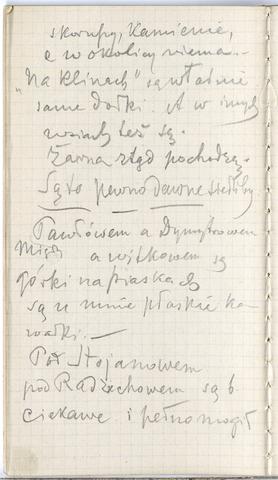 skorupy, Kamienie,
a w okolicy niema.-
"Na Klinach" są właśnie
same dołki. A w innych
wsiach też są.
Żarna stąd pochodzą.
Są to pewno dawne siedliby.
Pawłówem a Dymytrowem
Między a Witkowem są
górki na piaskach
są u mnie płaskie ka
wałki.—
Pod Stojanowem
pod Radziechowem są b.
ciekawe i pełno mogił